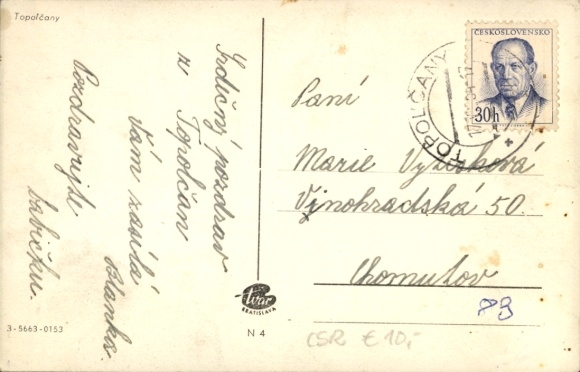 Topoľčany
Srdečný pozdrav
z Topolčan
Vám zasílá
Blanka.
Pozdravujte
babičku.
ČESKOSLOVENSKO
30h
TOPOĽČANY
Paní
Marie
Vinohradská 50.
Chomutov
Tvar
BRATISLAVA
3-5663-0153
N 4
ČSR € 10,-